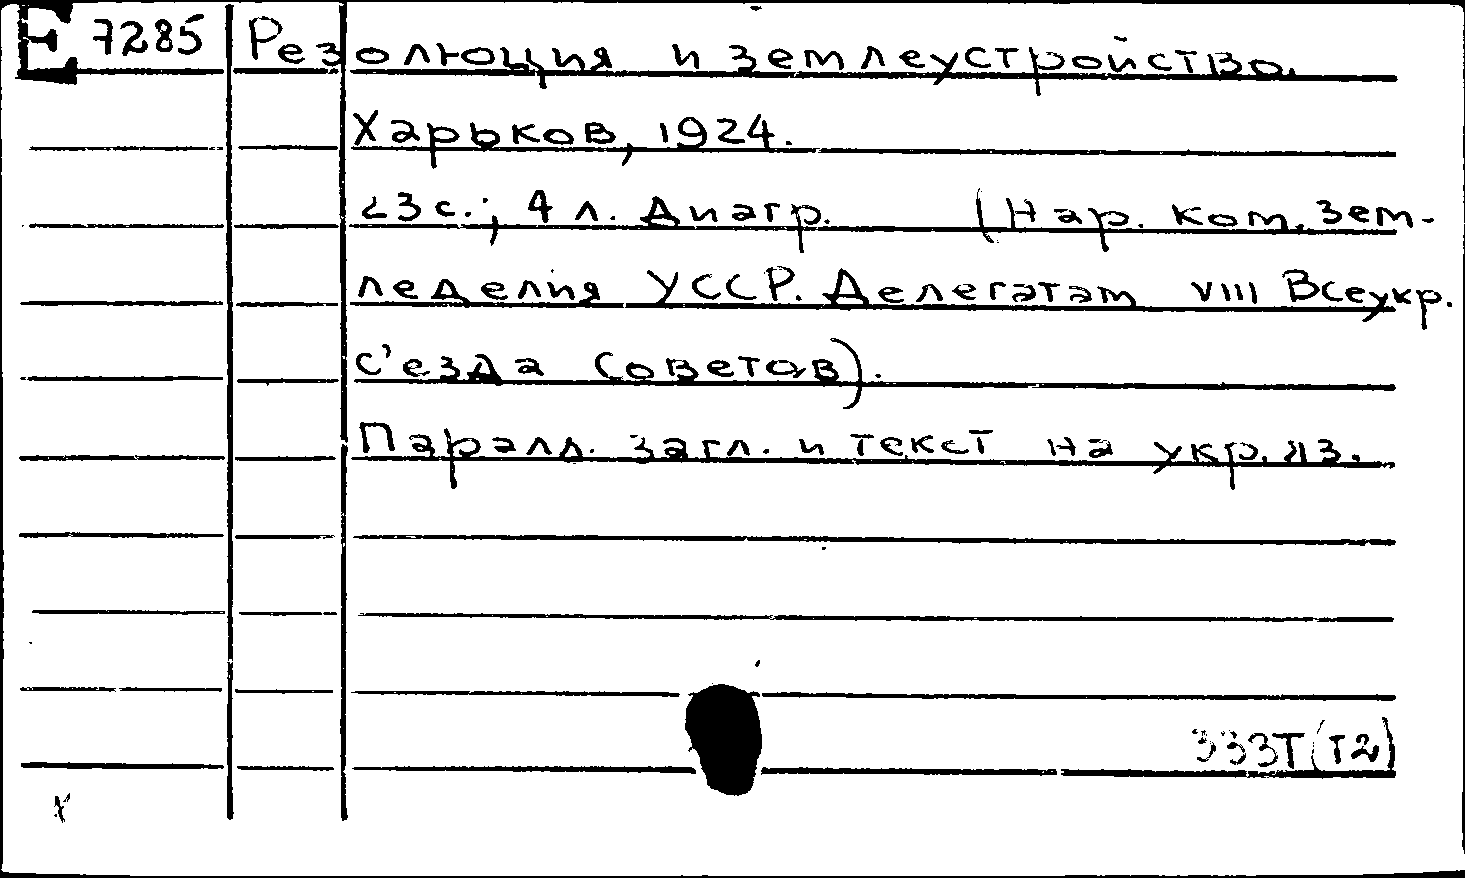 E 7285 Резолюция и землеустройство.
Харьков, 1924.
23 с.; 4 л. Диагр. (Нар. ком. зем-
леделия УССР. Делегатам VIII Всеукр.
с'езда Советов).
Паралл. загл. и текст на укр. яз.
333T(T2)